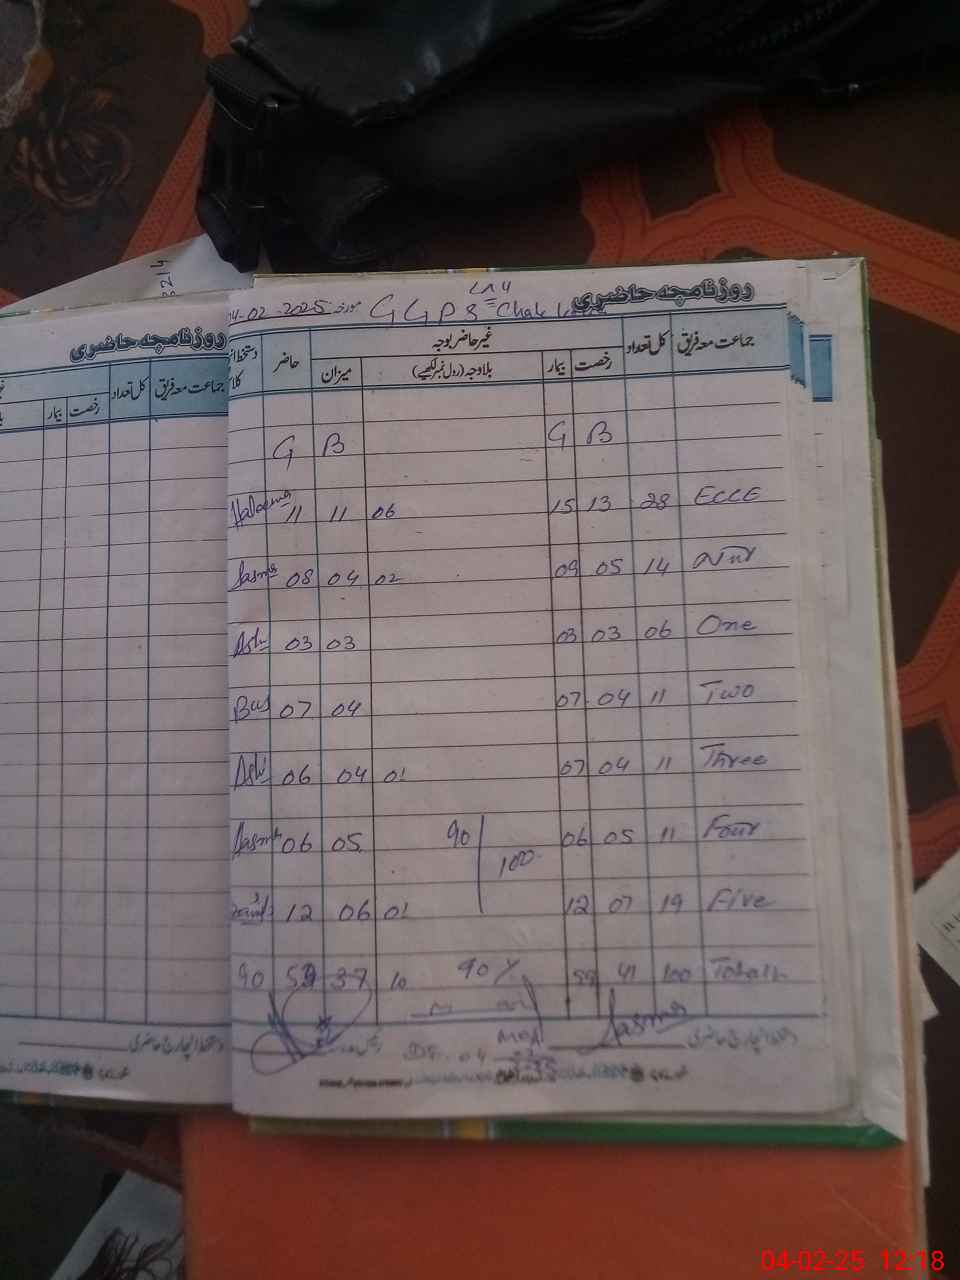 روزنامچہ حاضری
04-02-2025 مورخہ GGPS Chak
جماعت معہ فریق کل تعداد غیر حاضر بوجہ حاضر
رخصت بیمار بلاوجہ (رول نمبر لکھیے) میزان
G B G B
ECCE 28 13 15 06 11 11
14 05 09 02 04 08 Jasmn
One 06 03 03 03 03 Ash
Two 11 04 07 04 07 Bus
Three 11 04 07 01 04 06 Ash
Four 11 05 06 90/100 05 06 Jasmn
Five 19 07 12 01 06 12
Total 100 41 59 90% 10 37 53 90
دستخط انچارج حاضری Jasmn
روزنامچہ حاضری
جماعت معہ فریق کل تعداد
رخصت بیمار
دستخط انچارج حاضری
3214
04-02-25 12:18